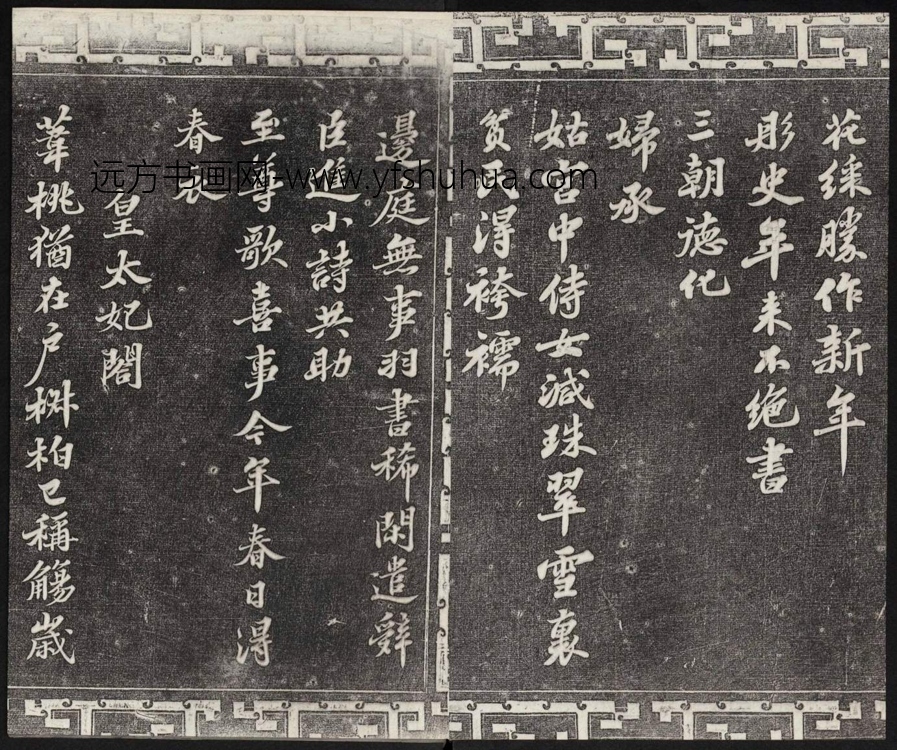 花綵勝作新年
彤史年來不絶書
三朝德化
婦承
姑宮中侍女減珠翠雪裏
貧民得袴襦
邊庭無事羽書稀閑遣辭
臣進小詩共助
至尊歌喜事今年春日得
春衣
皇太妃閤
葦桃猶在户椒柏已稱觴歲
远方书画网-www.yfshuhua.com